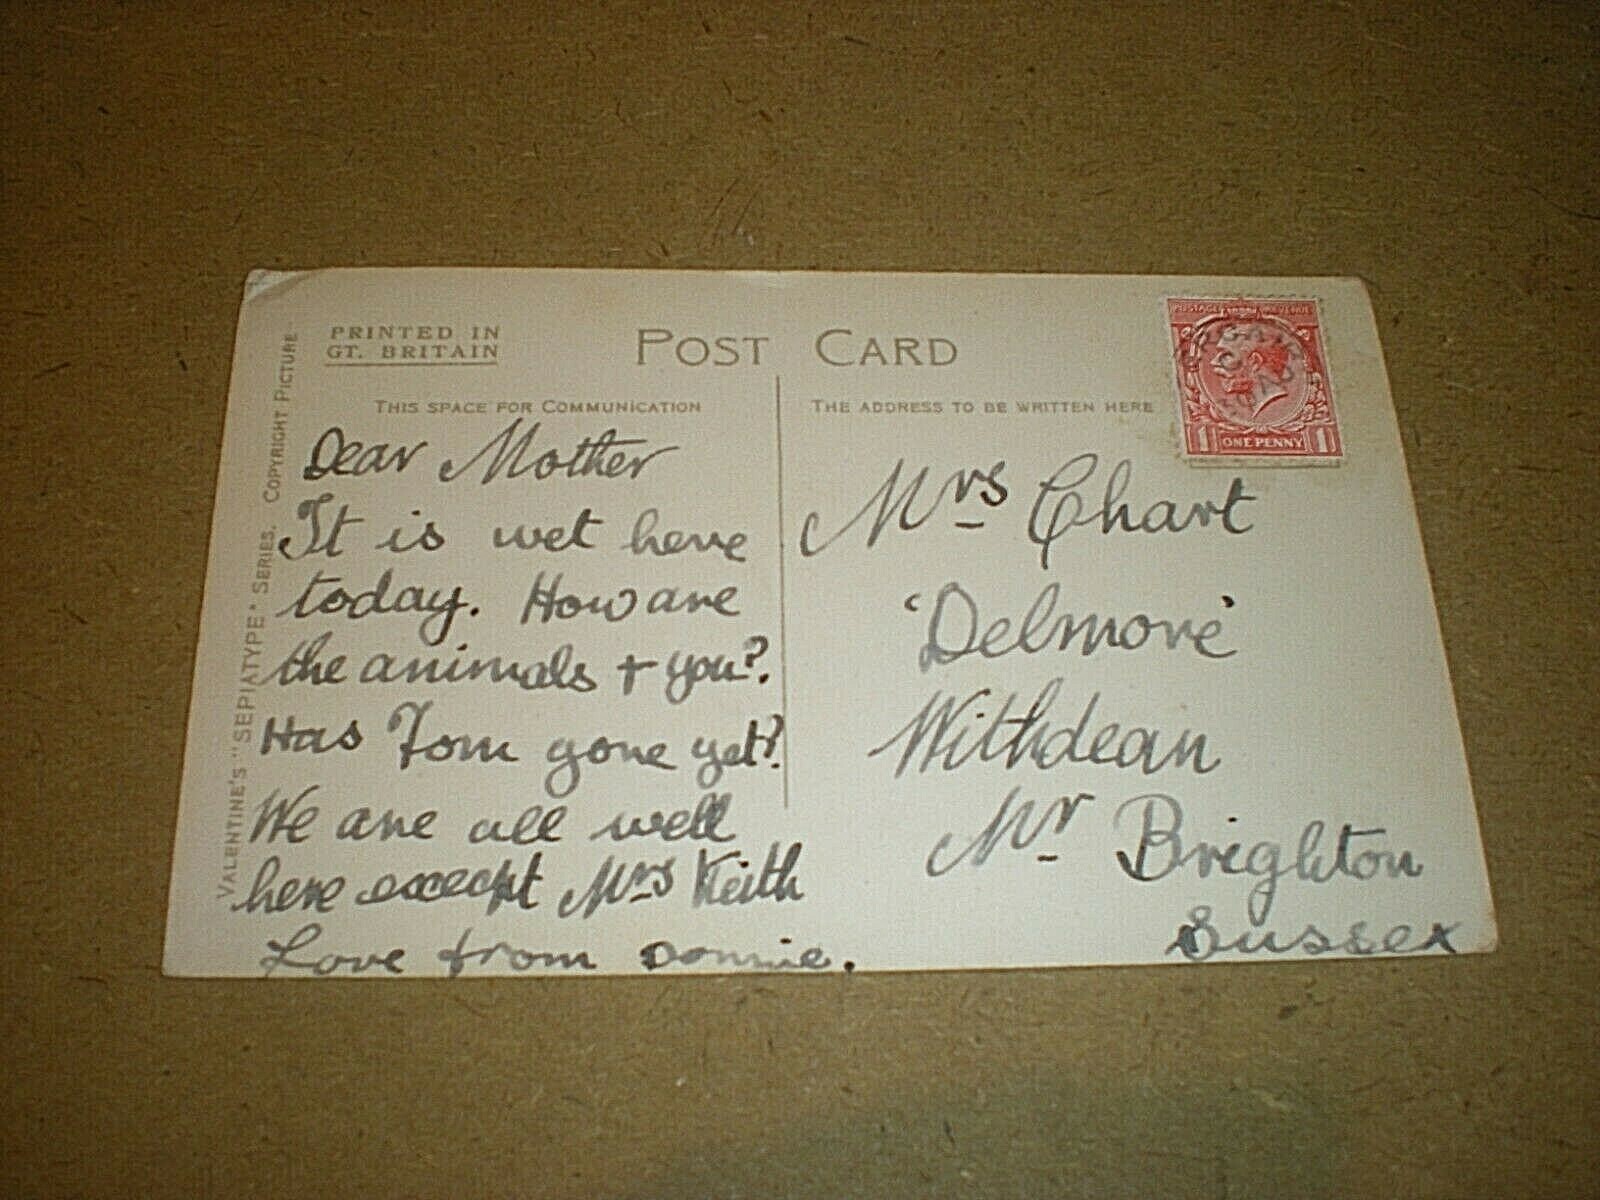 PRINTED IN
GT. BRITAIN
POST CARD
THIS SPACE FOR COMMUNICATION
THE ADDRESS TO BE WRITTEN HERE
VALENTINE'S "SEPIATYPE" SERIES. COPYRIGHT PICTURE
POSTAGE REVENUE
1 ONE PENNY 1
Dear Mother
It is wet here
today. How are
the animals + you?.
Has Tom gone yet?.
We are all well
here except Mrs Keith
Love from Donnie.
Mrs Chart
'Delmore'
Withdean
Nr Brighton
Sussex